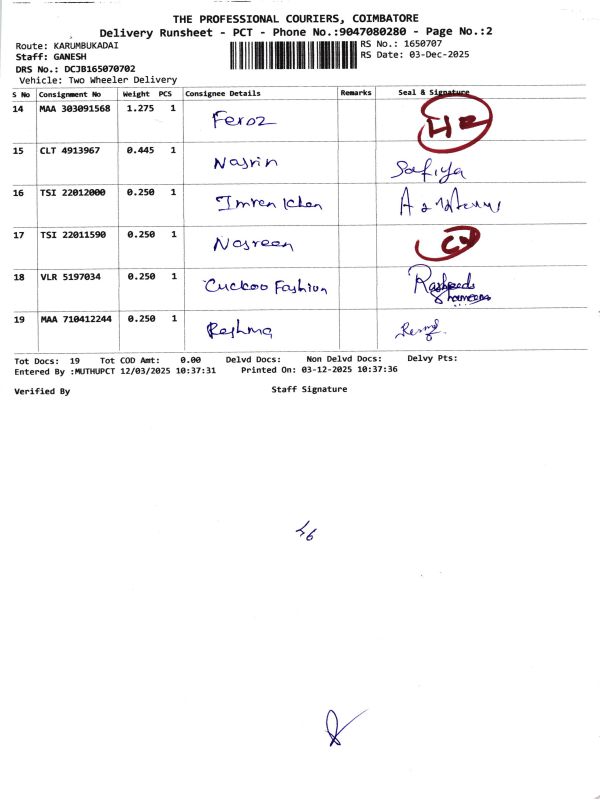 THE PROFESSIONAL COURIERS, COIMBATORE
Delivery Runsheet - PCT - Phone No.:9047080280 - Page No.:2
Route: KARUMBUKADAI
RS No.: 1650707
Staff: GANESH
RS Date: 03-Dec-2025
DRS No.: DCJB165070702
Vehicle: Two Wheeler Delivery
S No Consignment No Weight PCS Consignee Details Remarks Seal & Signature
14 MAA 303091568 1.275 1 Feroz
15 CLT 4913967 0.445 1 Nasrin Safiya
16 TSI 22012000 0.250 1 Imran Khan
17 TSI 22011590 0.250 1 Nasreen
18 VLR 5197034 0.250 1 Cuckoo Fashion Rasheeda
19 MAA 710412244 0.250 1 Reshma
Tot Docs: 19 Tot COD Amt: 0.00 Delvd Docs: Non Delvd Docs: Delvy Pts:
Entered By :MUTHUPCT 12/03/2025 10:37:31 Printed On: 03-12-2025 10:37:36
Verified By Staff Signature